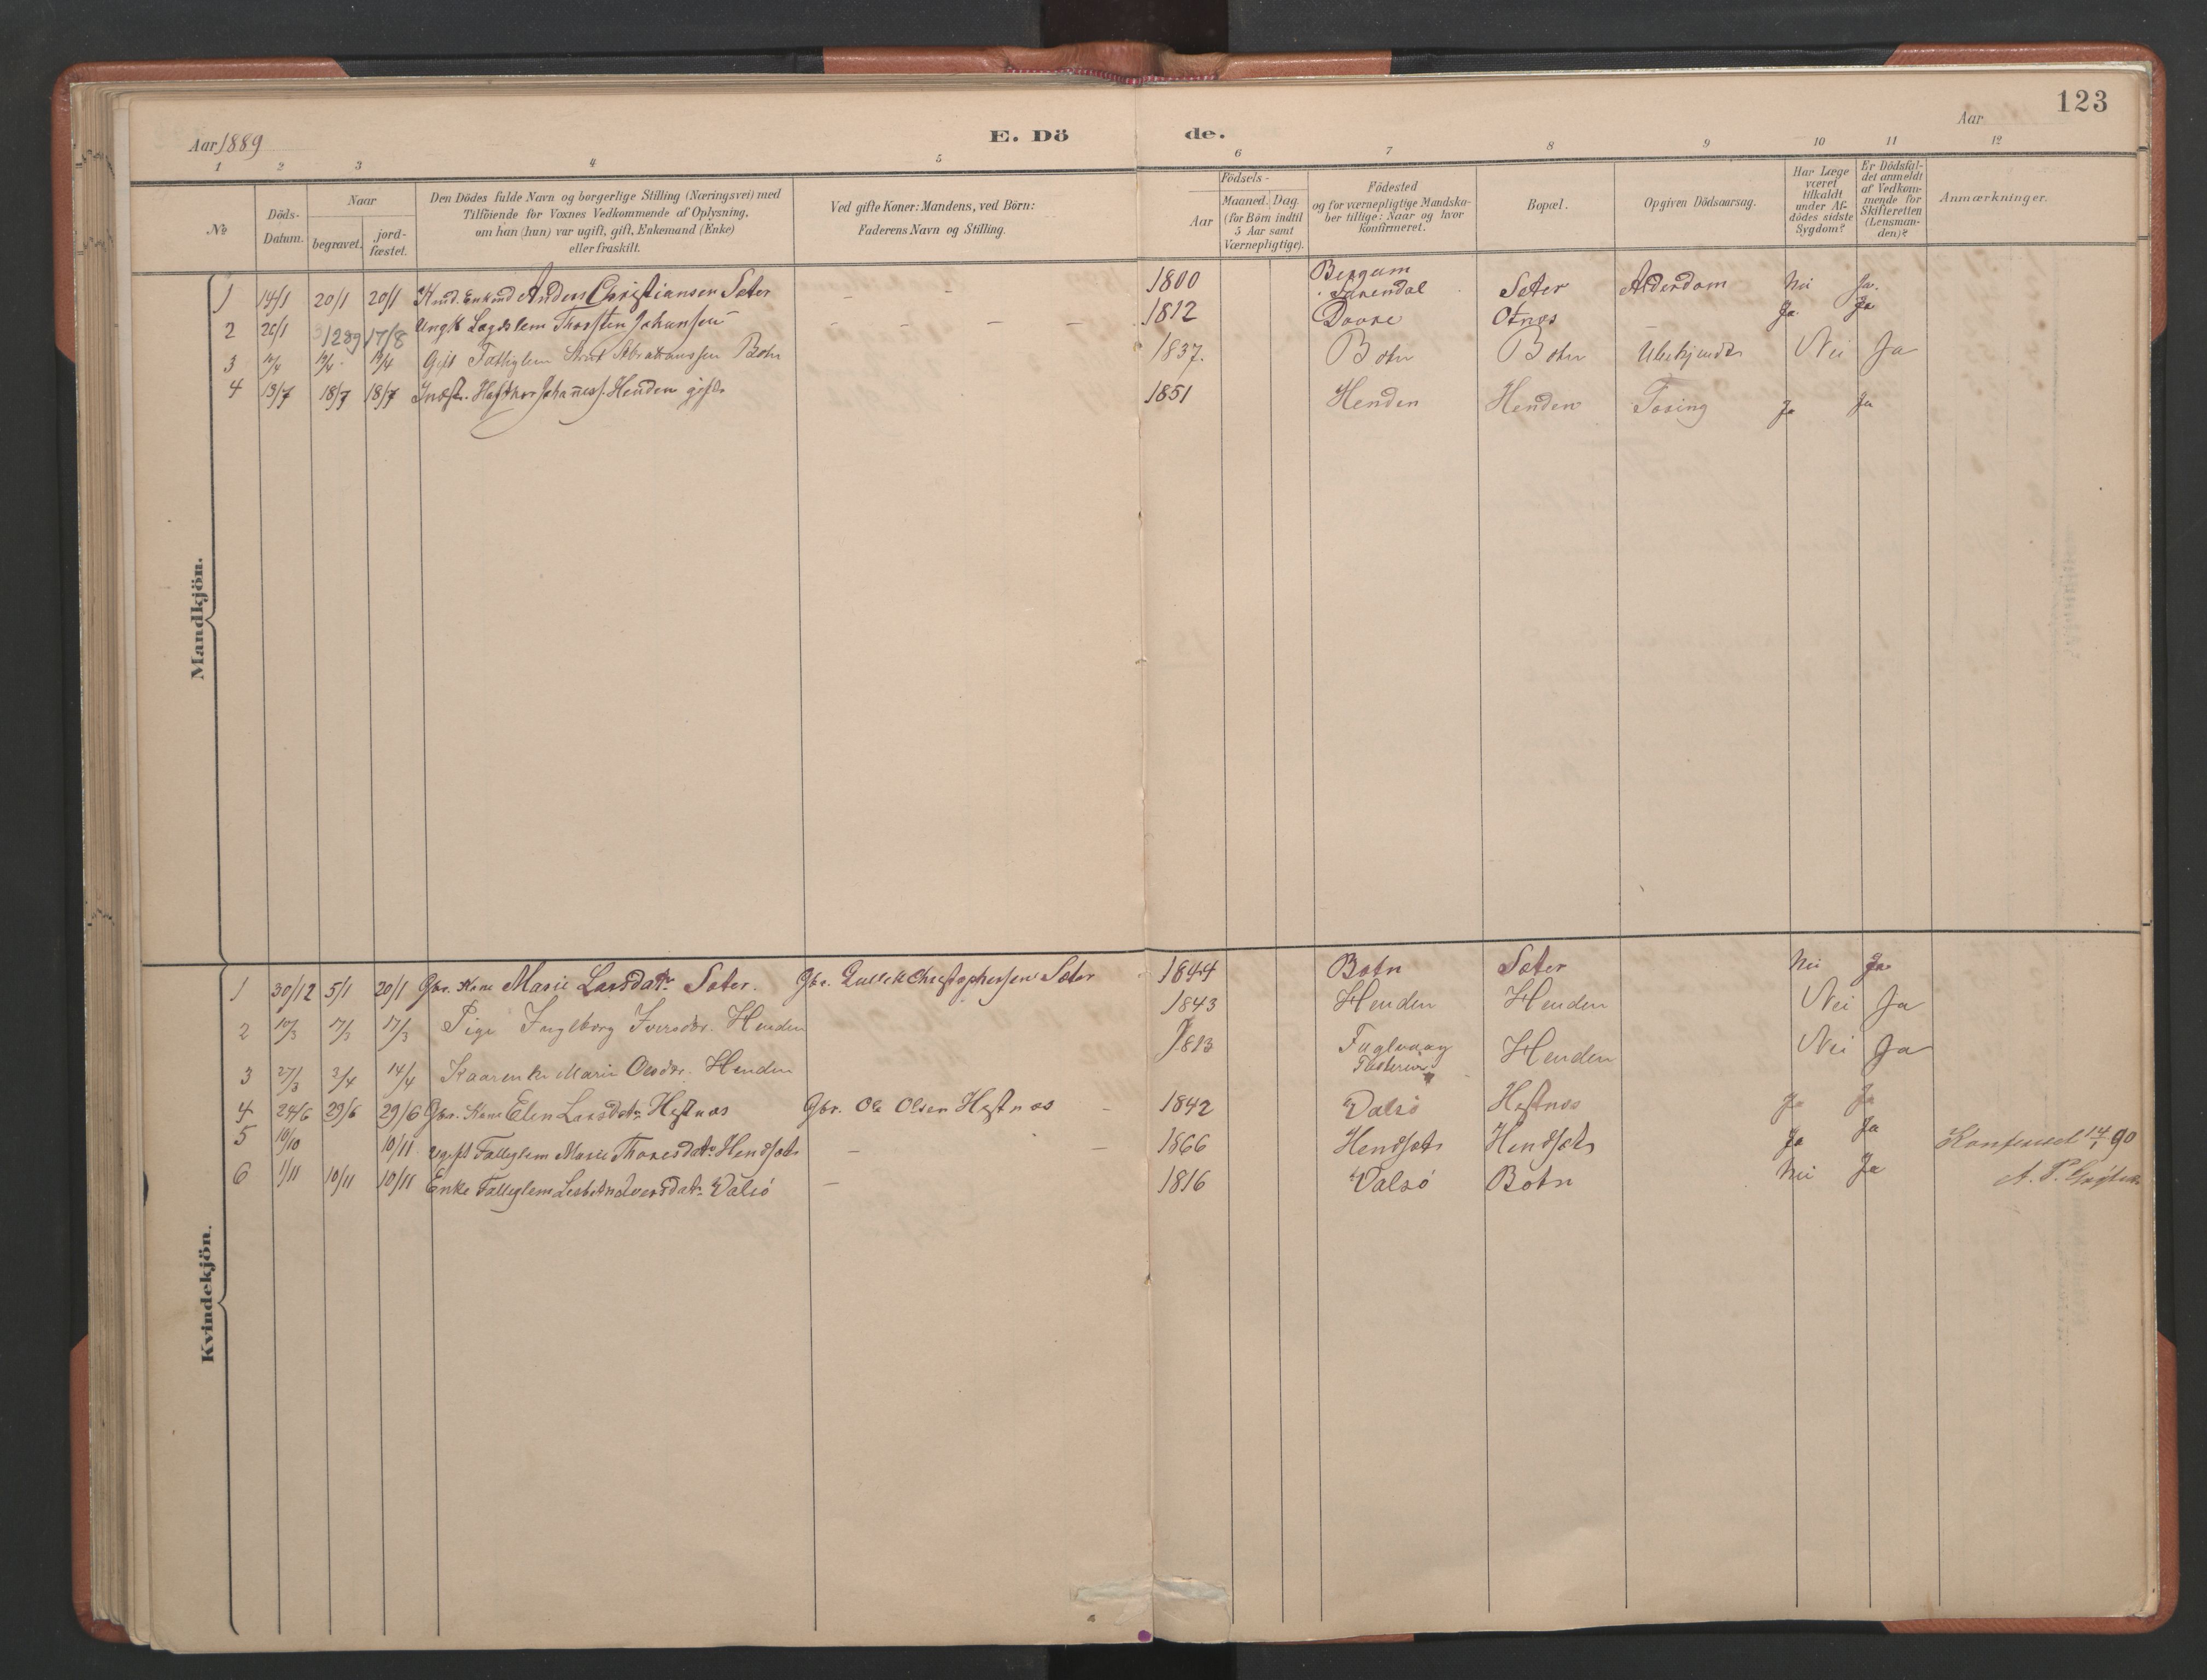 123
Aar 1889
E. Dö de.
Aar
1 2 3 4 5 6 7 8 9 10 11 12
№
Döds-Datum.
Naar
begravet.
jord-fæstet.
Den Dödes fulde Navn og borgerlige Stilling (Næringsvei) med
Tilföiende for Voxnes Vedkommende af Oplysning,
om han (hun) var ugift, gift, Enkemand (Enke)
eller fraskilt.
Ved gifte Koner: Mandens, ved Börn:
Faderens Navn og Stilling.
Födsels-
Aar
Maaned. Dag.
(for Börn indtil
5 Aar samt
Værnepligtige).
Födested
og for værnepligtige Mandska-
ber tillige: Naar og hvor
konfirmeret.
Bopæl.
Opgiven Dödsaarsag.
Har Læge
været
tilkaldt
under Af-
dödes sidste
Sygdom?
Er Dödsfal-
det anmeldt
af Vedkom-
mende for
Skifteretten
(Lensman-
den)?
Anmærkninger.
Mandkjön.
1 14/1 20/1 20/1 Anders Christiansen Sæter – – 1800 Surendal Sæter Alderdom Nei Ja
2 26/1 17/8 Ungk Lægdslem Thorsten Johansen – – – – 1812 Dovre Otnæs – Ja Ja
3 Gift Fattiglem Abrahamssen Botn 1837. Botn Botn Ubekjendt Nei Ja
4 13/7 18/7 18/7 Johaness. Henden gift 1851 Henden Henden Ja Ja
Kvindekjön.
1 30/12 5/1 20/1 Gbr. Kone Marie Larsdatr Sæter. Gbr. Christophersen Sæter 1844 Botn Sæter Nei Ja
2 10/3 17/3 17/3 Pige Ingeborg Iversdr. Henden 1843 Henden Henden Nei Ja
3 27/3 3/4 14/4 Marie Olsdr. Henden 1813 Fuglvaag Henden Nei Ja
4 24/6 29/6 29/6 Gbr. Kone Elen Larsdatr Hestnæs Gbr. Ole Olsen Hestnæs – 1842 Valsö Hestnæs Ja Ja
5 10/10 10/11 ugift Fattiglem Marie Thoresdatr Hendsæt – – 1866 Hendsæt Hendsæt Ja Ja 14/1 90
6 1/11 10/11 10/11 Enke Fattiglem Iversdatr Valsö – 1816 Valsö Botn Nei Ja